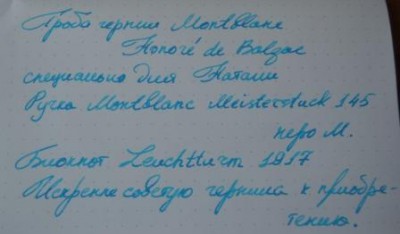 Проба чернил Montblanc
Honoré de Balzac
специально для Натали
Ручка Montblanc Meisterstuck 145
перо M.
Блокнот Leuchtturm 1917
Искренне советую чернила к приобре-
тению.